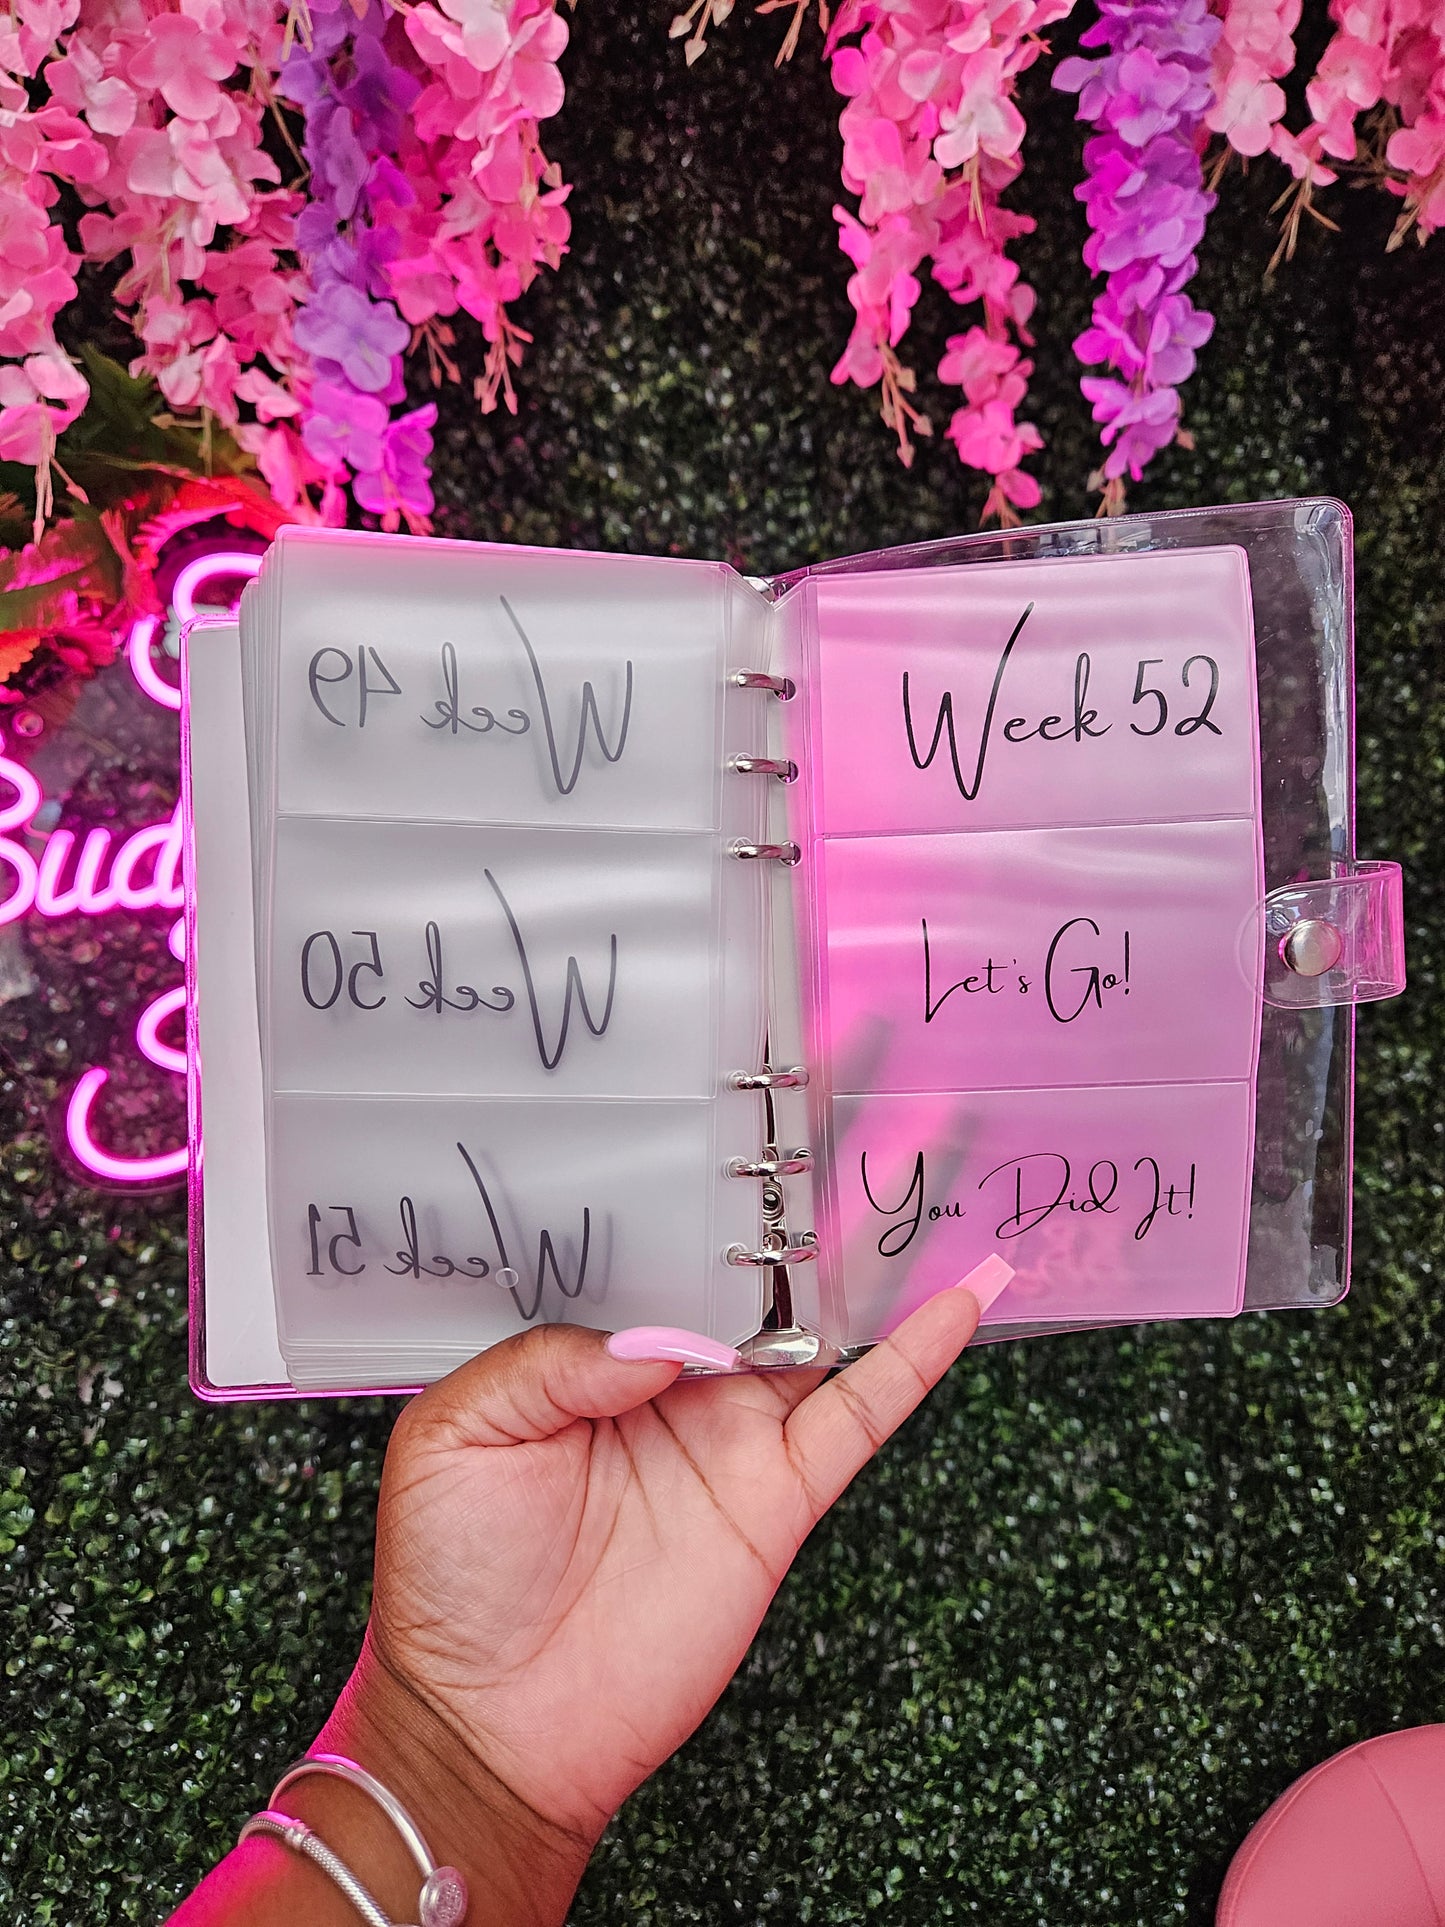 Week 49
Week 50
Week 51
Week 52
Let's Go!
You Did It!
Bud